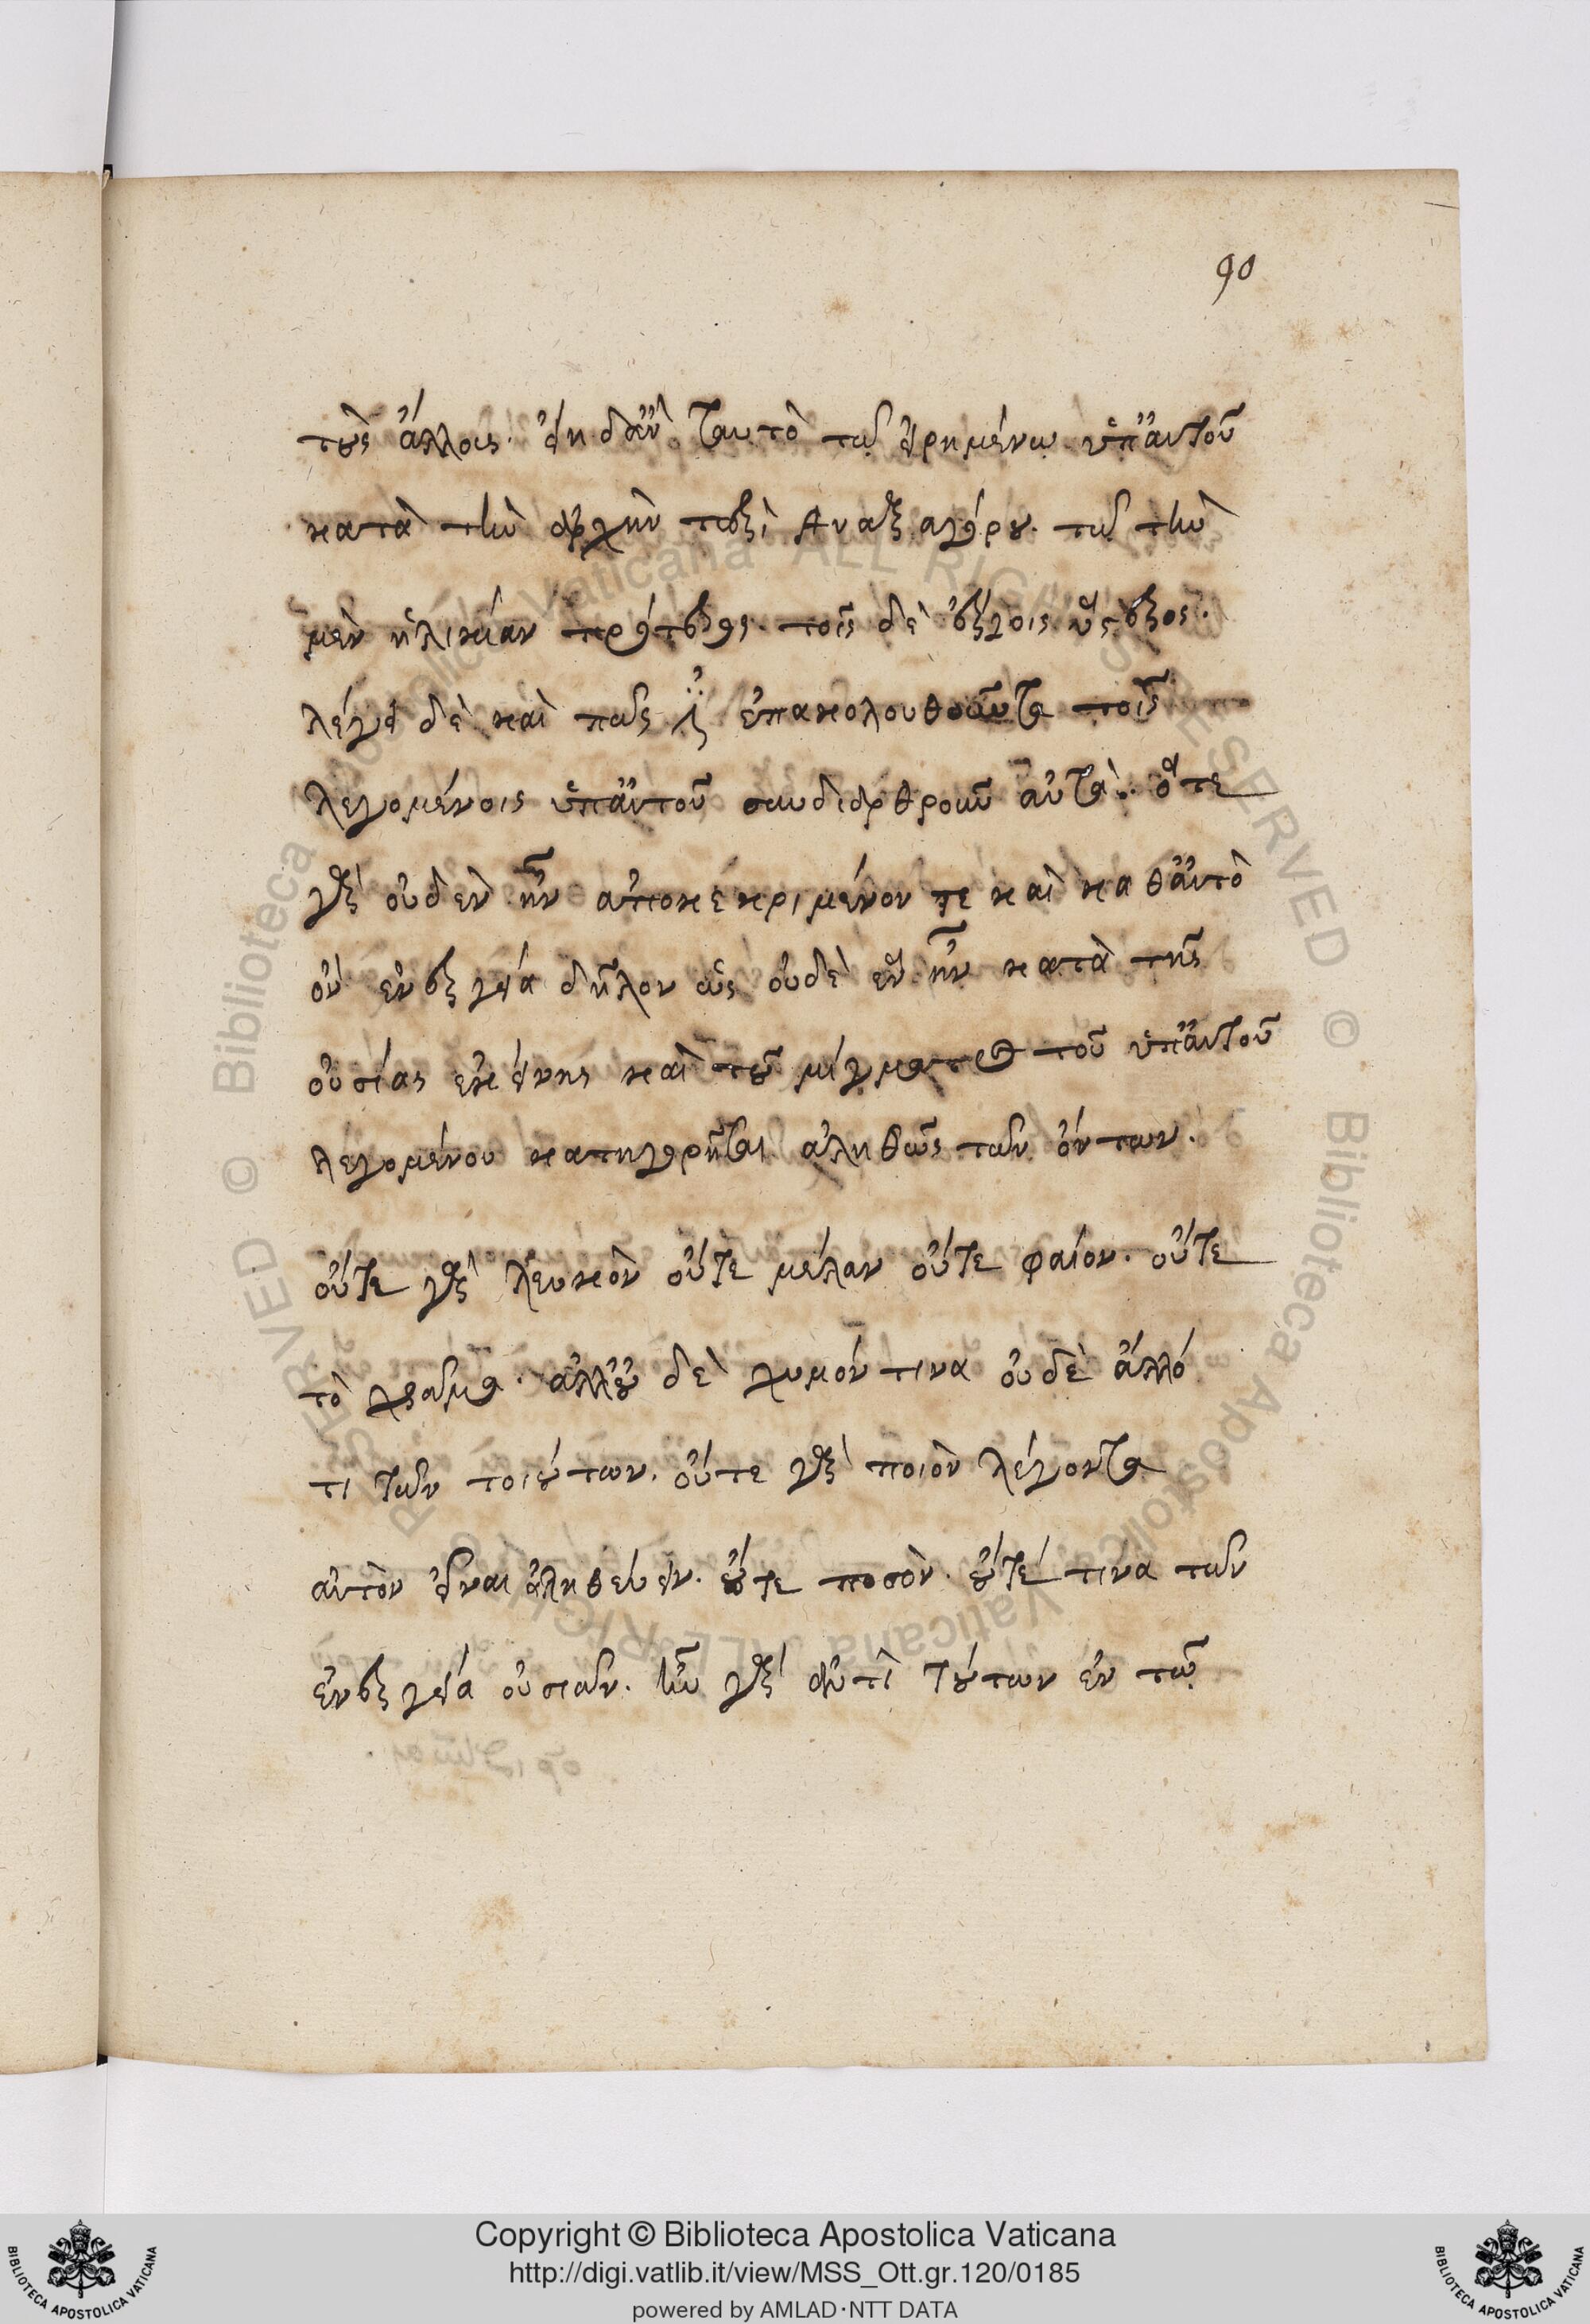 90
τοὺς ἄλλους. εἴη δ' ἂν ταυτὸ τῷ εἰρημένῳ ὑπ' αὐτοῦ
κατὰ τὴν ἀρχὴν περὶ Ἀναξαγόρου. τῷ τὴν
μὲν ἡλικίαν πρότερος. τοῖς δὲ ἔργοις ὕστερος.
λέγει δὲ καὶ πῶς ἐπακολουθοῦντα τοῖς
λεγομένοις ὑπ' αὐτοῦ συνδιαρθροῦν αὐτά. ὅτε
γὰρ οὐδὲν ἦν ἀποκεκριμένον τε καὶ καθ' αὑτὸ
ὂν ἐνεργείᾳ δῆλον ὡς οὐδὲ ἓν ἦν κατὰ τῆς
οὐσίας ἐκείνης καὶ τοῦ μίγματος τοῦ ὑπ' αὐτοῦ
λεγομένου κατηγορῆσαι ἀληθῶς τῶν ὄντων.
οὔτε γὰρ λευκὸν οὔτε μέλαν οὔτε φαίον. οὔτε
τὸ χρῶμα. ἀλλ' οὐδὲ χυμόν τινα οὐδὲ ἄλλό
τι τῶν τοιούτων. οὔτε γὰρ ποιὸν λέγοντα
αὐτὸν εἶναι ἀληθεύειν. οὔτε ποσὸν. οὔτέ τινα τῶν
ἐνεργείᾳ οὐσιῶν. ἦν γὰρ ἄν τι τούτων ἐν τῷ
Copyright © Biblioteca Apostolica Vaticana
http://digi.vatlib.it/view/MSS_Ott.gr.120/0185
powered by AMLAD·NTT DATA